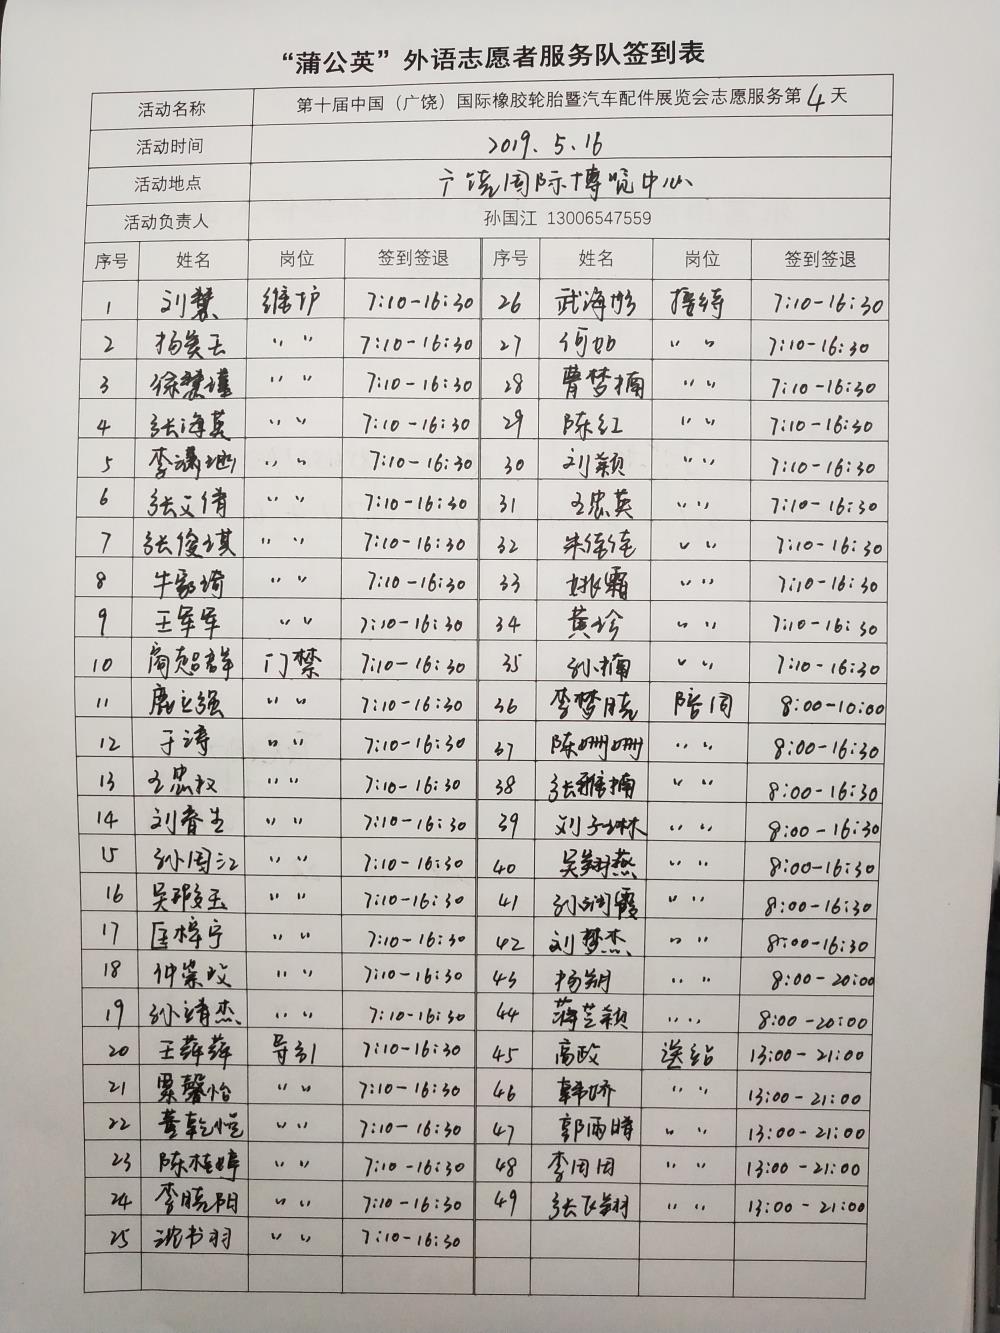 “蒲公英”外语志愿者服务队签到表
活动名称 第十届中国（广饶）国际橡胶轮胎暨汽车配件展览会志愿服务第4天
活动时间 2019.5.16
活动地点 广饶国际博览中心
活动负责人 孙国江 13006547559
序号 姓名 岗位 签到签退 序号 姓名 岗位 签到签退
1 刘慧 维护 7:10-16:30 26 武海彤 接待 7:10-16:30
2 杨奕玉 〃 〃 7:10-16:30 27 何如 〃 〃 7:10-16:30
3 徐慧瑾 〃 〃 7:10-16:30 28 曹梦楠 〃 〃 7:10-16:30
4 张海英 〃 〃 7:10-16:30 29 陈红 〃 〃 7:10-16:30
5 李潇逊 〃 〃 7:10-16:30 30 刘颖 〃 〃 7:10-16:30
6 张文倩 〃 〃 7:10-16:30 31 王忠英 〃 〃 7:10-16:30
7 张俊琪 〃 〃 7:10-16:30 32 朱倩倩 〃 〃 7:10-16:30
8 牛毅琦 〃 〃 7:10-16:30 33 姚霜 〃 〃 7:10-16:30
9 王军军 〃 〃 7:10-16:30 34 黄珍 〃 〃 7:10-16:30
10 周超群 门禁 7:10-16:30 35 孙楠 〃 〃 7:10-16:30
11 鹿立强 〃 〃 7:10-16:30 36 李梦晓 陪同 8:00-10:00
12 于涛 〃 〃 7:10-16:30 37 陈姗姗 〃 〃 8:00-16:30
13 王忠权 〃 〃 7:10-16:30 38 张雅楠 〃 〃 8:00-16:30
14 刘春生 〃 〃 7:10-16:30 39 刘子琳 〃 〃 8:00-16:30
15 孙国江 〃 〃 7:10-16:30 40 吴翔燕 〃 〃 8:00-16:30
16 吴玉 〃 〃 7:10-16:30 41 孙润霞 〃 〃 8:00-16:30
17 匡梓宁 〃 〃 7:10-16:30 42 刘梦杰 〃 〃 8:00-16:30
18 仲崇政 〃 〃 7:10-16:30 43 杨朔 〃 〃 8:00-20:00
19 孙靖杰 〃 〃 7:10-16:30 44 蒋芝颖 〃 〃 8:00-20:00
20 王萍萍 导引 7:10-16:30 45 高政 送站 13:00-21:00
21 馨怡 〃 〃 7:10-16:30 46 韩娇 〃 〃 13:00-21:00
22 董乾恺 〃 〃 7:10-16:30 47 郭雨晴 〃 〃 13:00-21:00
23 陈桂婷 〃 〃 7:10-16:30 48 李田田 〃 〃 13:00-21:00
24 李晓阳 〃 〃 7:10-16:30 49 张飞翔 〃 〃 13:00-21:00
25 沈书羽 〃 〃 7:10-16:30